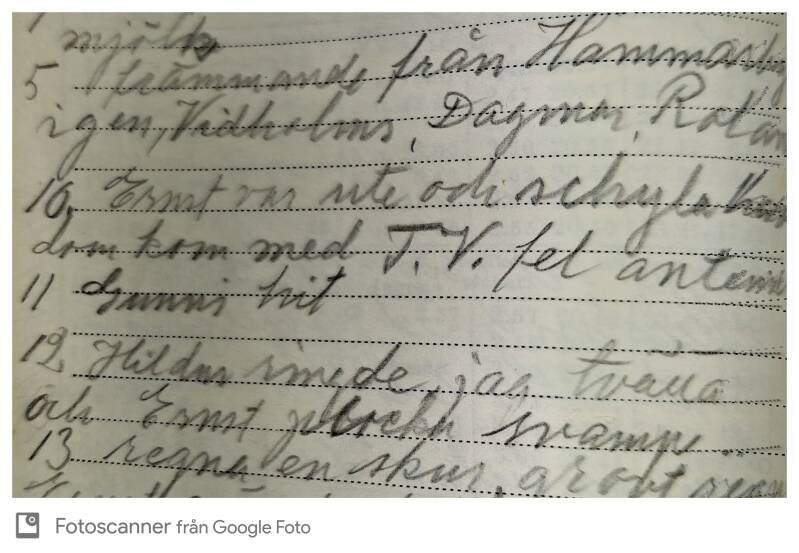 mjölk
5 främmande från
igen, Vidholms, Dagmar,
10. Ernst var ute och
dom kom med T.V. fel
11 Gunni hit
12. Hildur ringde, jag tväta
och Ernst plocka svamp
13 regna en skur,
Fotoscanner från Google Foto